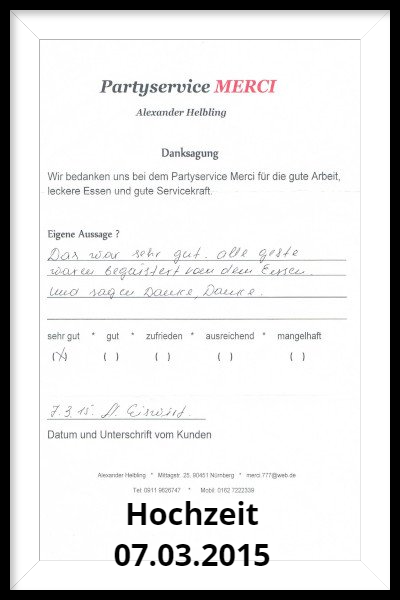 Partyservice MERCI
Alexander Helbling
Danksagung
Wir bedanken uns bei dem Partyservice Merci für die gute Arbeit,
leckere Essen und gute Servicekraft.
Eigene Aussage ?
Das war sehr gut. alle geste
waren begeistert von dem Essen.
und sagen Danke, Danke.
sehr gut * gut * zufrieden * ausreichend * mangelhaft
(X) ( ) ( ) ( ) ( )
7.3.15.
Datum und Unterschrift vom Kunden
Alexander Helbling * Mittagstr. 25, 90451 Nürnberg * merci.777@web.de
Tel: 0911 9626747 * Mobil: 0162 7222339
Hochzeit
07.03.2015